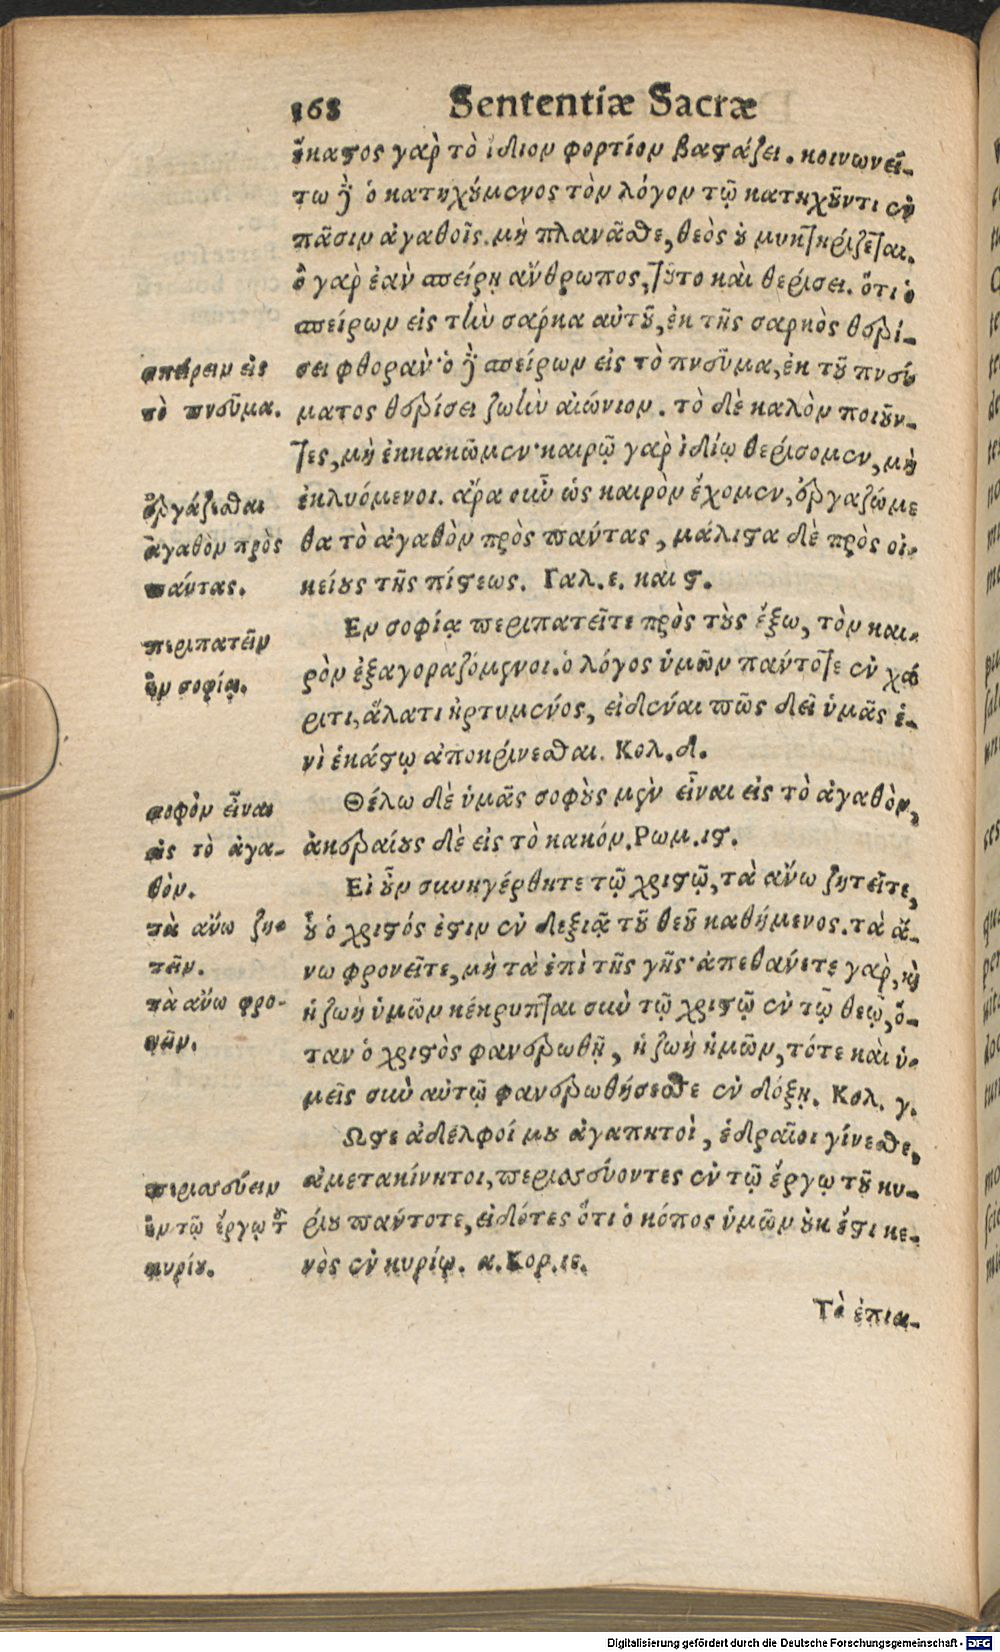 168 Sententiæ Sacræ
ἕκαστος γὰρ τὸ ἴδιον φορτίον βαστάζει. κοινωνεί-
τω δὲ ὁ κατηχούμενος τὸν λόγον τῷ κατηχοῦντι ἐν
πᾶσιν ἀγαθοῖς. μὴ πλανᾶσθε, θεὸς οὐ μυκτηρίζεται.
ὃ γὰρ ἐὰν σπείρῃ ἄνθρωπος, τοῦτο καὶ θερίσει. ὅτι ὁ
σπείρων εἰς τὴν σάρκα αὐτοῦ, ἐκ τῆς σαρκὸς θερί-
σπείρειν εἰς
σει φθοράν· ὁ δὲ σπείρων εἰς τὸ πνεῦμα, ἐκ τοῦ πνεύ
τὸ πνεῦμα.
ματος θερίσει ζωὴν αἰώνιον. τὸ δὲ καλὸν ποιοῦν-
τες, μὴ ἐκκακῶμεν· καιρῷ γὰρ ἰδίῳ θερίσομεν, μὴ
ἐργάζεσθαι
ἐκλυόμενοι. ἄρα οὖν ὡς καιρὸν ἔχομεν, ἐργαζώμε
ἀγαθὸν πρὸς
θα τὸ ἀγαθὸν πρὸς πάντας, μάλιστα δὲ πρὸς οἰ-
πάντας.
κείους τῆς πίστεως. Γαλ. ε. καὶ ϛ.
περιπατεῖν
Εν σοφίᾳ περιπατεῖτε πρὸς τοὺς ἔξω, τὸν και-
ἐν σοφίᾳ.
ρὸν ἐξαγοραζόμενοι. ὁ λόγος ὑμῶν πάντοτε ἐν χά
ριτι, ἅλατι ἠρτυμένος, εἰδέναι πῶς δεῖ ὑμᾶς ἑ-
νὶ ἑκάστῳ ἀποκρίνεσθαι. Κολ. δ.
σοφὸν εἶναι
Θέλω δὲ ὑμᾶς σοφοὺς μὲν εἶναι εἰς τὸ ἀγαθὸν,
εἰς τὸ ἀγα-
ἀκεραίους δὲ εἰς τὸ κακόν. Ρωμ. ιϛ.
θὸν.
Εἰ οὖν συνηγέρθητε τῷ χριστῷ, τὰ ἄνω ζητεῖτε,
τὰ ἄνω ζη-
οὗ ὁ χριστός ἐστιν ἐν δεξιᾷ τοῦ θεοῦ καθήμενος. τὰ ἄ-
τεῖν.
νω φρονεῖτε, μὴ τὰ ἐπὶ τῆς γῆς· ἀπεθάνετε γὰρ, καὶ
τὰ ἄνω φρο-
ἡ ζωὴ ὑμῶν κέκρυπται σὺν τῷ χριστῷ ἐν τῷ θεῷ, ὅ-
νεῖν.
ταν ὁ χριστὸς φανερωθῇ, ἡ ζωὴ ἡμῶν, τότε καὶ ὑ-
μεῖς σὺν αὐτῷ φανερωθήσεσθε ἐν δόξῃ. Κολ. γ.
Ωστε ἀδελφοί μου ἀγαπητοὶ, ἑδραῖοι γίνεσθε,
περισσεύειν
ἀμετακίνητοι, περισσεύοντες ἐν τῷ ἔργῳ τοῦ κυ-
ἐν τῷ ἔργῳ τοῦ
ρίου πάντοτε, εἰδότες ὅτι ὁ κόπος ὑμῶν οὐκ ἔστι κε-
κυρίου.
νὸς ἐν κυρίῳ. α. Κορ. ιε.
Τὸ ἐπια-
Digitalisierung gefördert durch die Deutsche Forschungsgemeinschaft - DFG